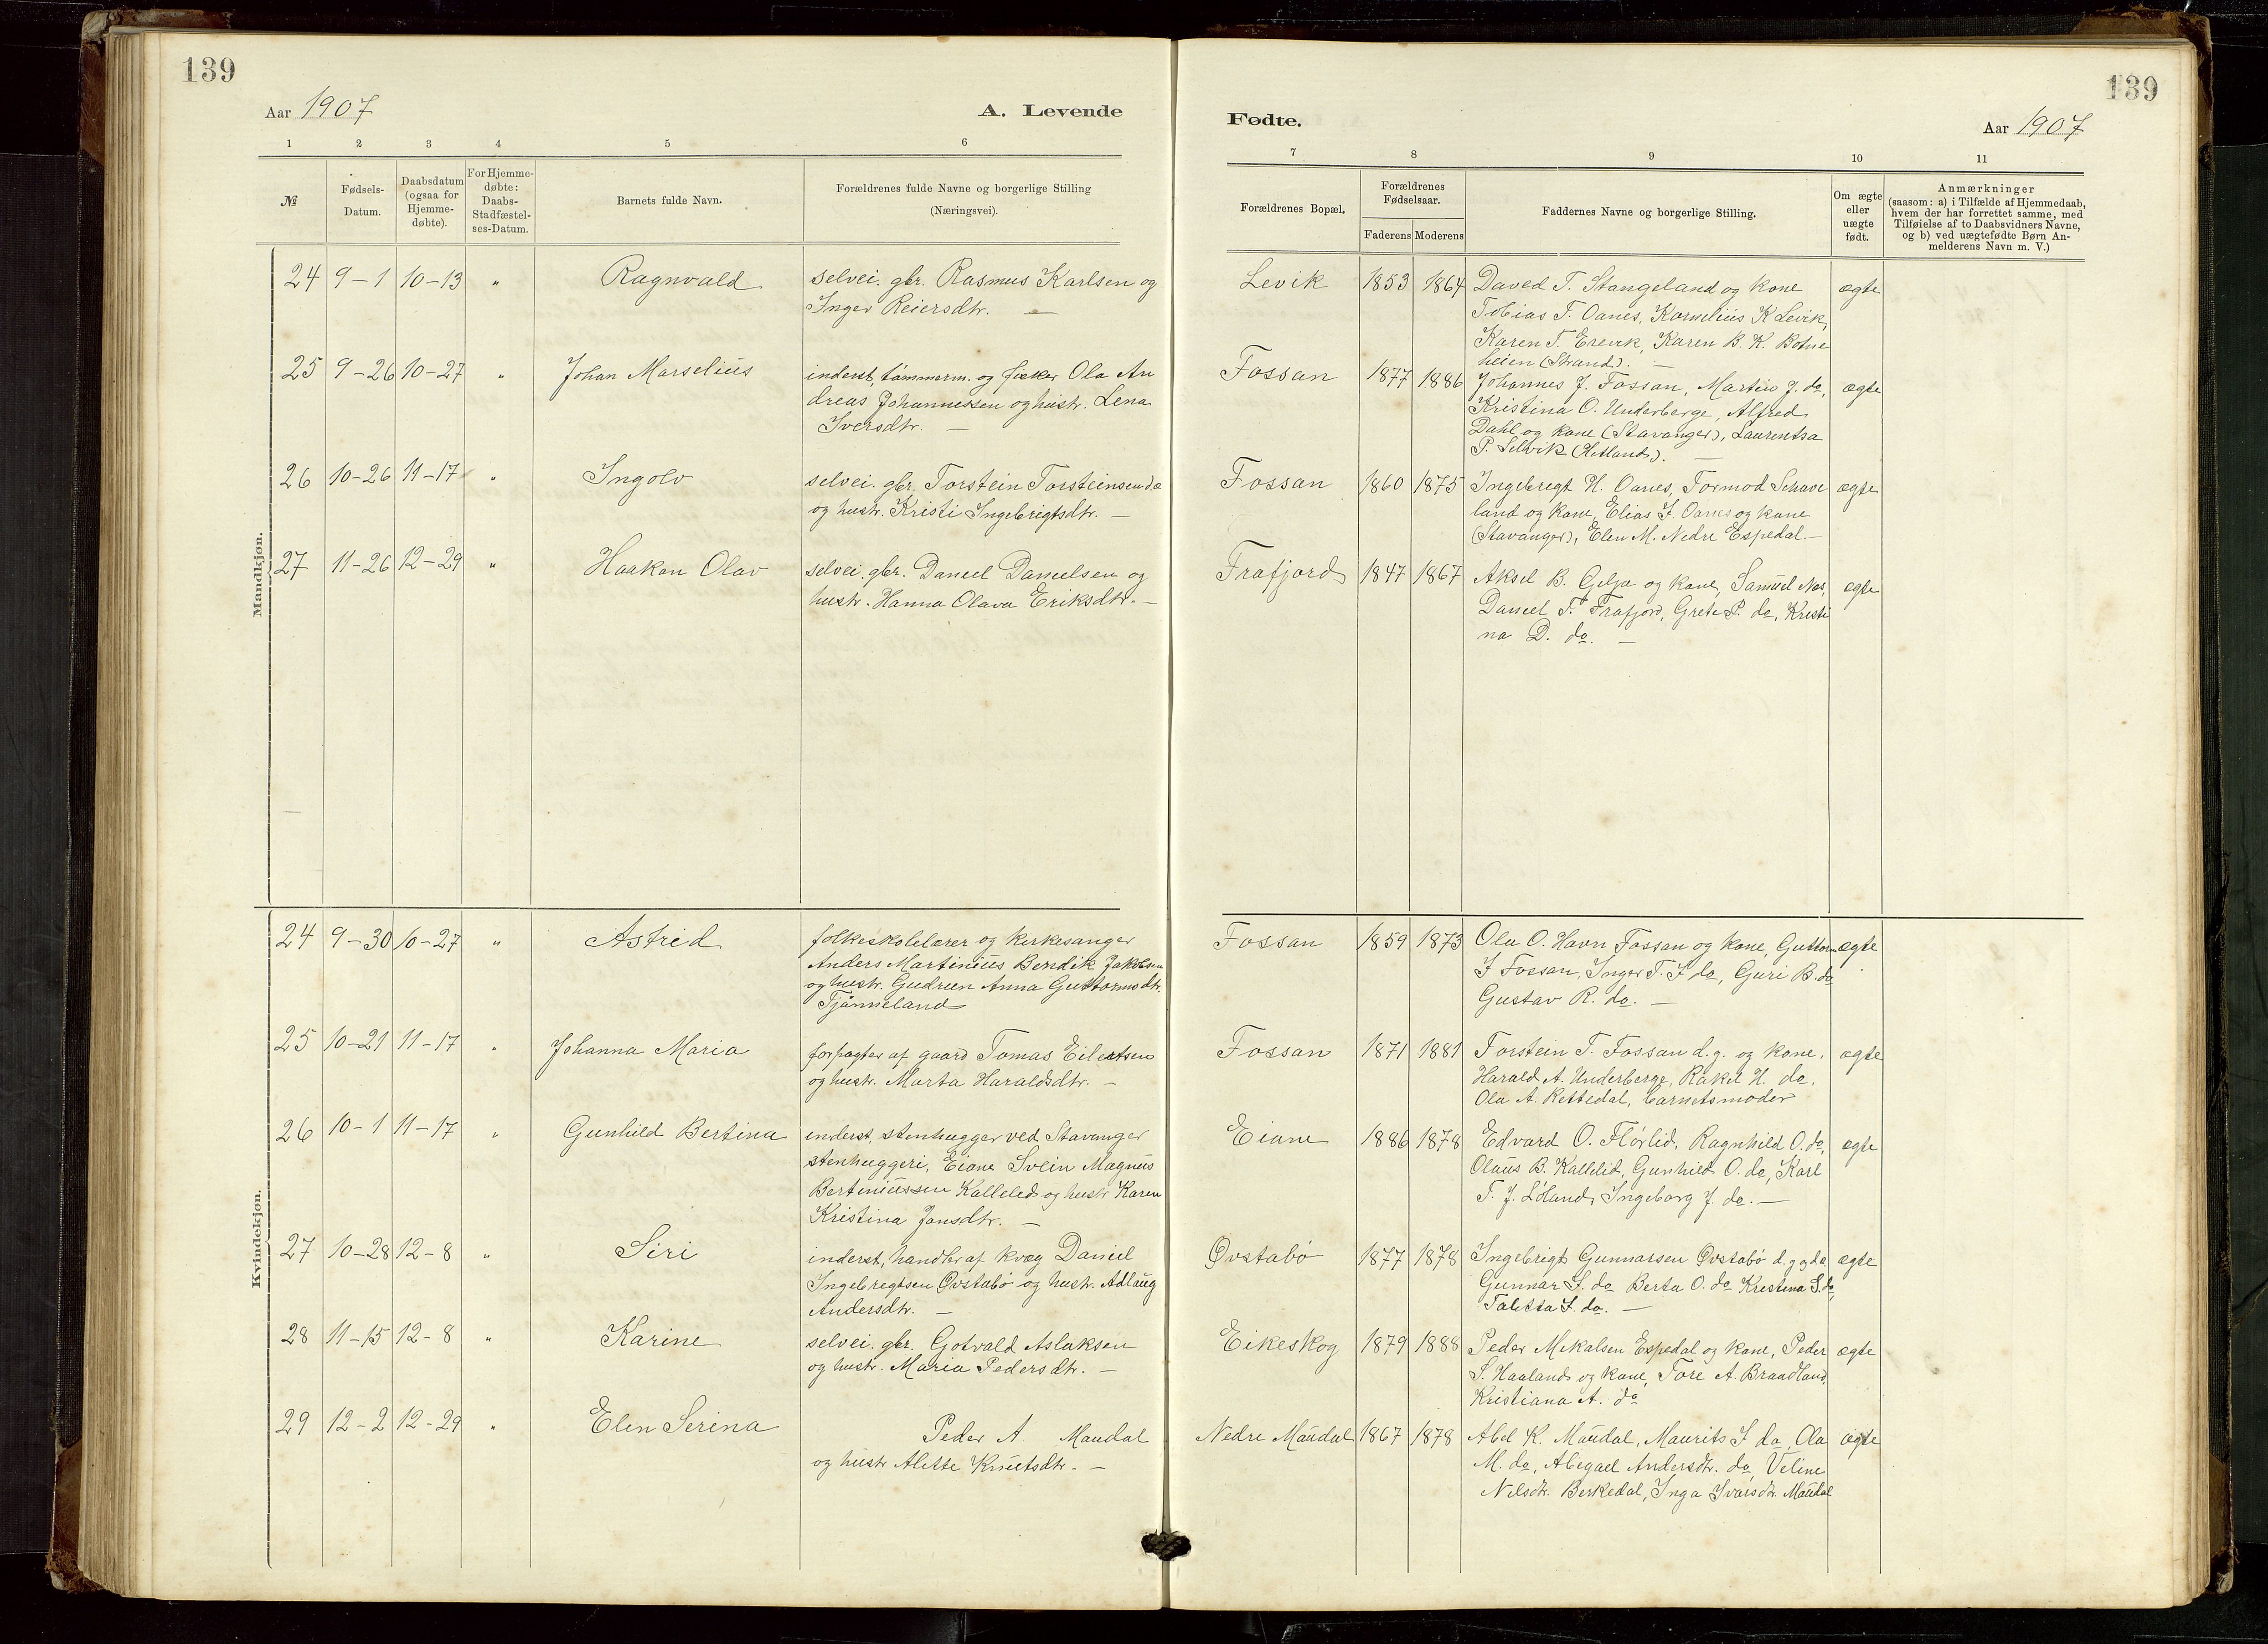 139
Aar 1907
A. Levende
1 2 3 4 5 6
№
Fødsels-
Datum.
Daabsdatum
(ogsaa for
Hjemme-
døbte).
For Hjemme-
døbte:
Daabs-
Stadfæstel-
ses-Datum.
Barnets fulde Navn.
Forældrenes fulde Navne og borgerlige Stilling
(Næringsvei).
Mandkjøn.
24 9-1 10-13 " Ragnvald selvei. gbr. Rasmus Karlsen og
Inger Reiersdtr. —
25 9-26 10-27 " Johan Marselius inderst, tømmerm. og fisker Ola An
dreas Johannessen og hustr. Lena
Iversdtr. —
26 10-26 11-17 " Ingolv selvei. gbr. Torstein Torsteinsen d.e
og hustr. Kristi Ingebrigtsdtr. —
27 11-26 12-29 " Haakon Olav selvei. gbr. Daniel Danielsen og
hustr. Hanna Olava Eriksdtr. —
Kvindekjøn.
24 9-30 10-27 " Astrid folkeskolelærer og kirkesanger
Anders Martinius Bendik Jakobsen
og hustr. Gudrun Anna Guttormsdtr.
Tjånneland
25 10-21 11-17 " Johanna Maria forpagter af gaard Tomas Eilertsen
og hustr. Marta Haraldsdtr. —
26 10-1 11-17 " Gunhild Bertina inderst, stenhugger ved Stavanger
stenhuggeri, Eiane Svein Magnus
Bertiniussen Kalleled og hustr Karen
Kristina Jansdtr. —
27 10-28 12-8 " Siri inderst, handler af kvæg Daniel
Ingebregtsen Øvstabø og hustr. Adlaug
Andersdtr. —
28 11-15 12-8 " Karine selvei. gbr. Gotvald Aslaksen
og hustr. Maria Pedersdtr. —
29 12-2 12-29 " Elen Serina Peder A Maudal
og hustr Alette Knutsdtr. —
139
Fødte.
Aar 1907
7 8 9 10 11
Forældrenes Bopæl.
Forældrenes
Fødselsaar.
Faderens Moderens
Faddernes Navne og borgerlige Stilling.
Om ægte
eller
uægte
født.
Anmærkninger
(saasom: a) i Tilfælde af Hjemmedaab,
hvem der har forrettet samme, med
Tilføielse af to Daabsvidners Navne,
og b) ved uægtefødte Børn An-
melderens Navn m. V.)
Levik 1853 1864 Daved T. Stangeland og kone ægte
Tobias T. Oanes, Kornelius K Levik,
Karen T. Erevik, Karen B. K. Botne
heien (Strand). —
Fossan 1877 1886 Johannes J. Fossan, Martin J. do, ægte
Kristina O. Underberge, Alfred
Dahl og kone (Stavanger), Laurentsa
P. Selvik (Hetland). —
Fossan 1860 1875 Ingebregt H. Oanes, Tormod Schave ægte
land og kone, Elias I. Oanes og kone
(Stavanger), Elen M. Nedre Espedal. —
Frafjord 1847 1867 Aksel B. Gilja og kone, Samuel Nes, ægte
Daniel T. Frafjord, Grete P. do, Kristi
na D. do. —
Fossan 1859 1873 Ola O. Havn Fossan og kone, Guttorm ægte
I Fossan, Inger T. I do, Guri B. do
Gustav R. do. —
Fossan 1871 1881 Torstein T. Fossan d. y. og kone, ægte
Harald A. Underberge, Rakel H. do.
Ola A. Rettedal, barnets moder
Eiane 1886 1878 Edvard O. Flørlid, Ragnhild O. do, ægte
Olaus B. Kallelid, Gunhild O. do, Karl
T. J. Løland, Ingeborg J. do. —
Øvstabø 1877 1878 Ingebrigt Gunnarsen Øvstabø d. y do, ægte
Gunnar I. do Berta O. do Kristina I. do,
Taletta I. do. —
Eikeskog 1879 1888 Peder Mikalsen Espedal og kone, Peder ægte
S. Haaland og kone, Tore A. Braadland,
Kristiana A. do
Nedre Maudal 1867 1878 Abel K. Maudal, Maurits I do, Ola ægte
M. do, Abegael Andersdtr. do, Veline
Nelsdtr. Berkedal, Inga Ivarsdtr. Maudal